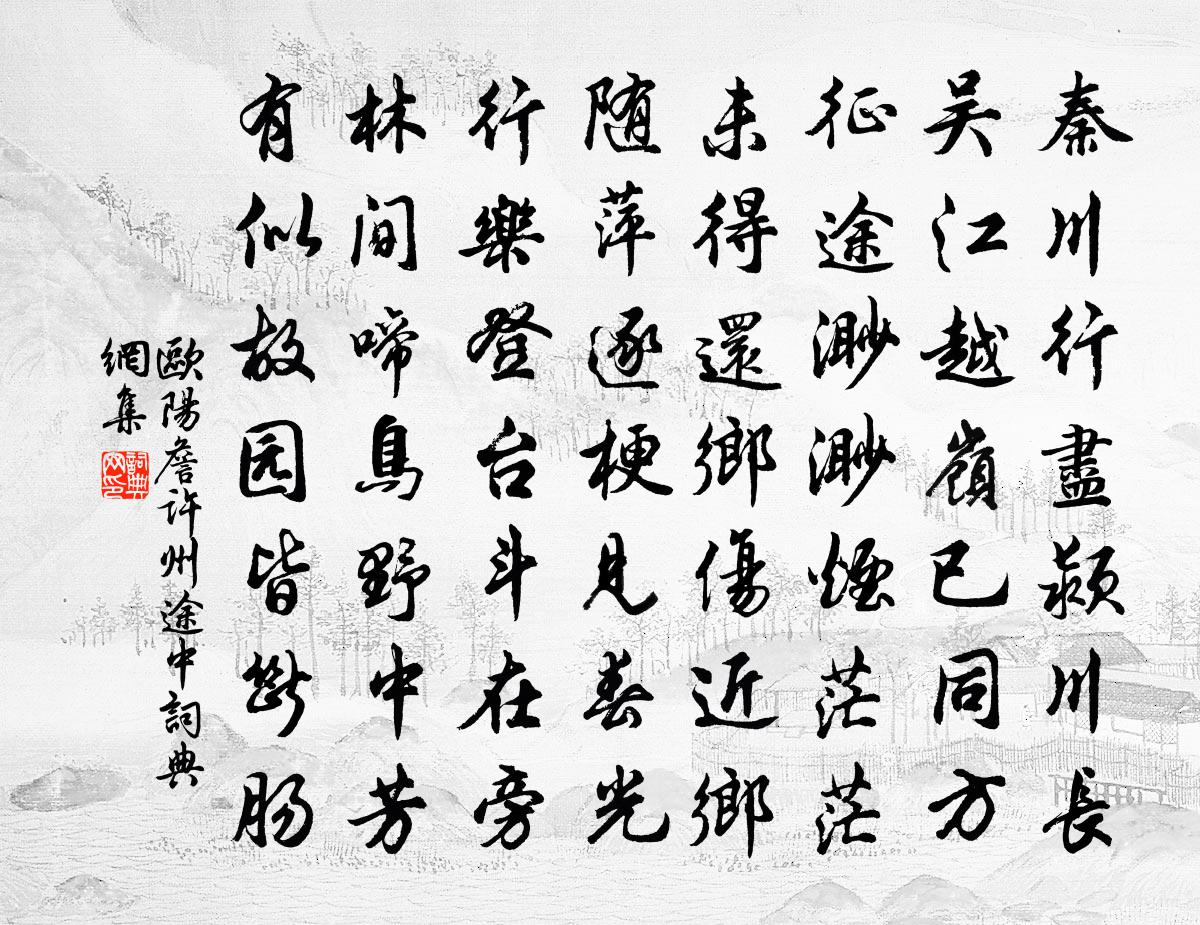 秦川行盡潁川長
吴江越嶺已同方
征途渺渺煙茫茫
未得還鄉傷近鄉
随萍逐梗見春光
行樂登台斗在旁
林间啼鳥野中芳
有似故园皆斷肠
歐陽詹许州途中詞典
網集
詞典
网印